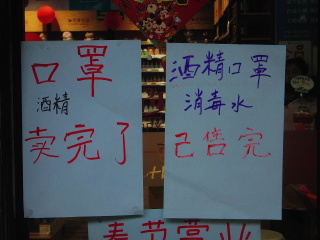 口罩
酒精
卖完了
酒精口罩
消毒水
己售完
春节营业